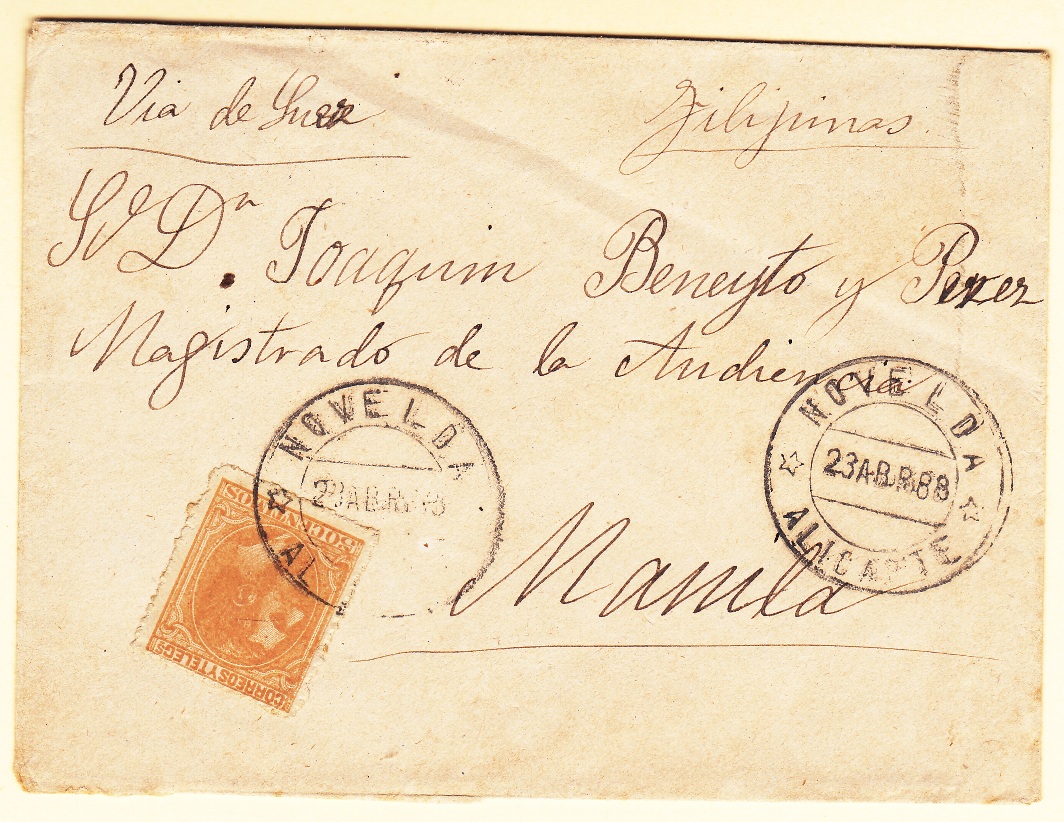 Via de Suez
Filipinas
Sr Dn Joaquin Beneyto y Perez
Magistrado de la Audiencia
Manila
NOVELDA
23 ABR. 88
AL
NOVELDA
23 ABR. 88
ALICANTE
CORREOS Y TELEGS
CENTIMOS